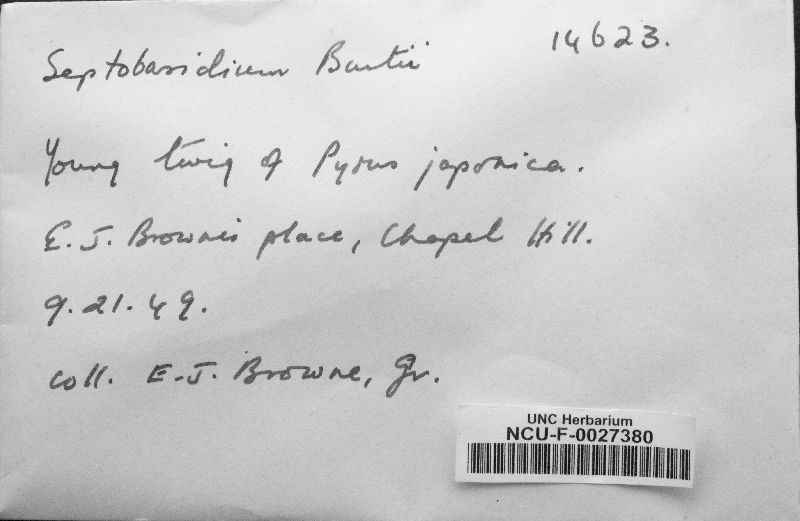 14623.
Septobasidium Burtii
Young twig of Pyrus japonica.
E. J. Browne's place, Chapel Hill.
9.21.49.
coll. E.J. Browne, Jr.
UNC Herbarium
NCU-F-0027380